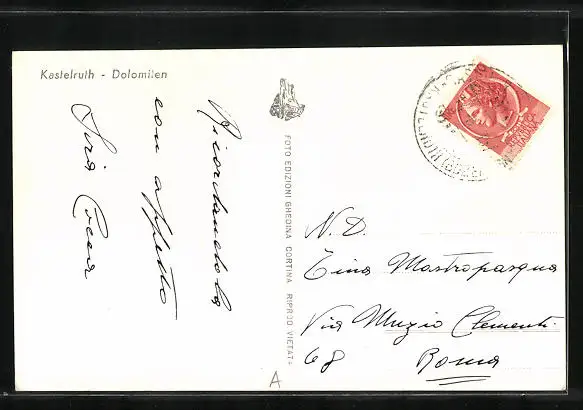 Kastelruth - Dolomiten
Ricordandola
con affetto
FOTO EDIZIONI GHEDINA CORTINA RIPROD. VIETATA
N. D.
Tina Mastropasqua
Via Muzio Clementi
68 Roma
A